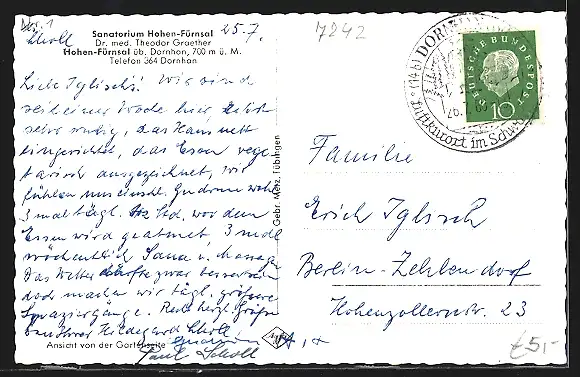 Abs. 1
Scholl
25.7.
7242
Sanatorium Hohen-Fürnsal
Dr. med. Theodor Graether
Hohen-Fürnsal üb. Dornhan, 700 m ü. M.
Telefon 364 Dornhan
Liebe Iglisch's! Wir sind
seit einer Woche hier, es ist
sehr ruhig, das Haus nett
eingerichtet, das Essen vege-
tarisch ausgezeichnet, wir
fühlen uns
3 mal tägl. ½ Std. vor dem
Essen wird geatmet, 3 mal
wöchentlich Sauna u. Massage
Das Wetter dürfte zwar besser sein
doch machen wir tägl. grössere
Spaziergänge. Recht herzl. Grüße
Hildegard Scholl,
Paul Scholl
Ansicht von der Gartenseite
Gebr. Metz, Tübingen
DEUTSCHE BUNDESPOST
10
(14b) DORNHAN
Luftkurort im Schw
Familie
Erich Iglisch
Berlin-Zehlendorf
Hohenzollernstr. 23
€5,-